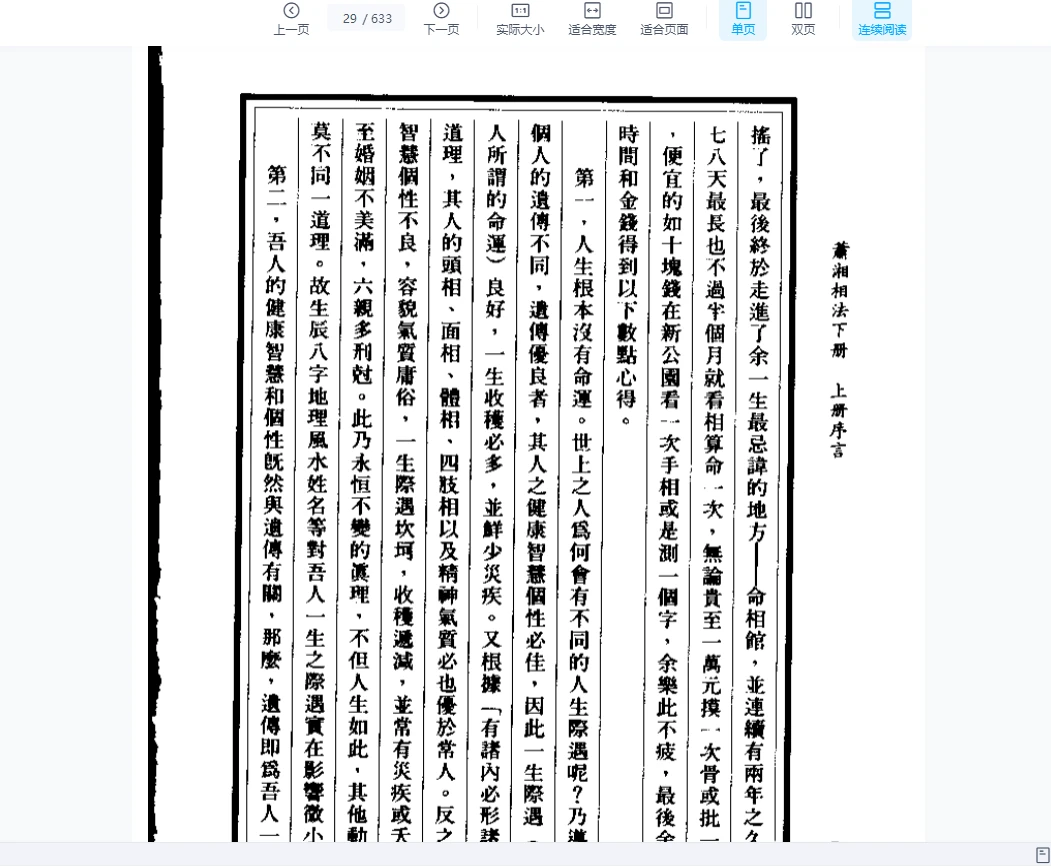 上一页
29 / 633
下一页
1:1
实际大小
适合宽度
适合页面
单页
双页
连续阅读
蕭湘相法下册 上册序言
搖了，最後終於走進了余一生最忌諱的地方——命相館，並連續有兩年之久
七八天最長也不過半個月就看相算命一次，無論貴至一萬元摸一次骨或批一
，便宜的如十塊錢在新公園看一次手相或是測一個字，余樂此不疲，最後余
時間和金錢得到以下數點心得。
第一，人生根本沒有命運。世上之人爲何會有不同的人生際遇呢？乃遵
個人的遺傳不同，遺傳優良者，其人之健康智慧個性必佳，因此一生際遇（
人所謂的命運）良好，一生收穫必多，並鮮少災疾。又根據「有諸內必形諸
道理，其人的頭相、面相、體相、四肢相以及精神氣質必也優於常人。反之
智慧個性不良，容貌氣質庸俗，一生際遇坎坷，收穫遞減，並常有災疾或夭
至婚姻不美滿，六親多刑尅。此乃永恒不變的眞理，不但人生如此，其他動
莫不同一道理。故生辰八字地理風水姓名等對吾人一生之際遇實在影響微小
第二，吾人的健康智慧和個性旣然與遺傳有關，那麼，遺傳即爲吾人一